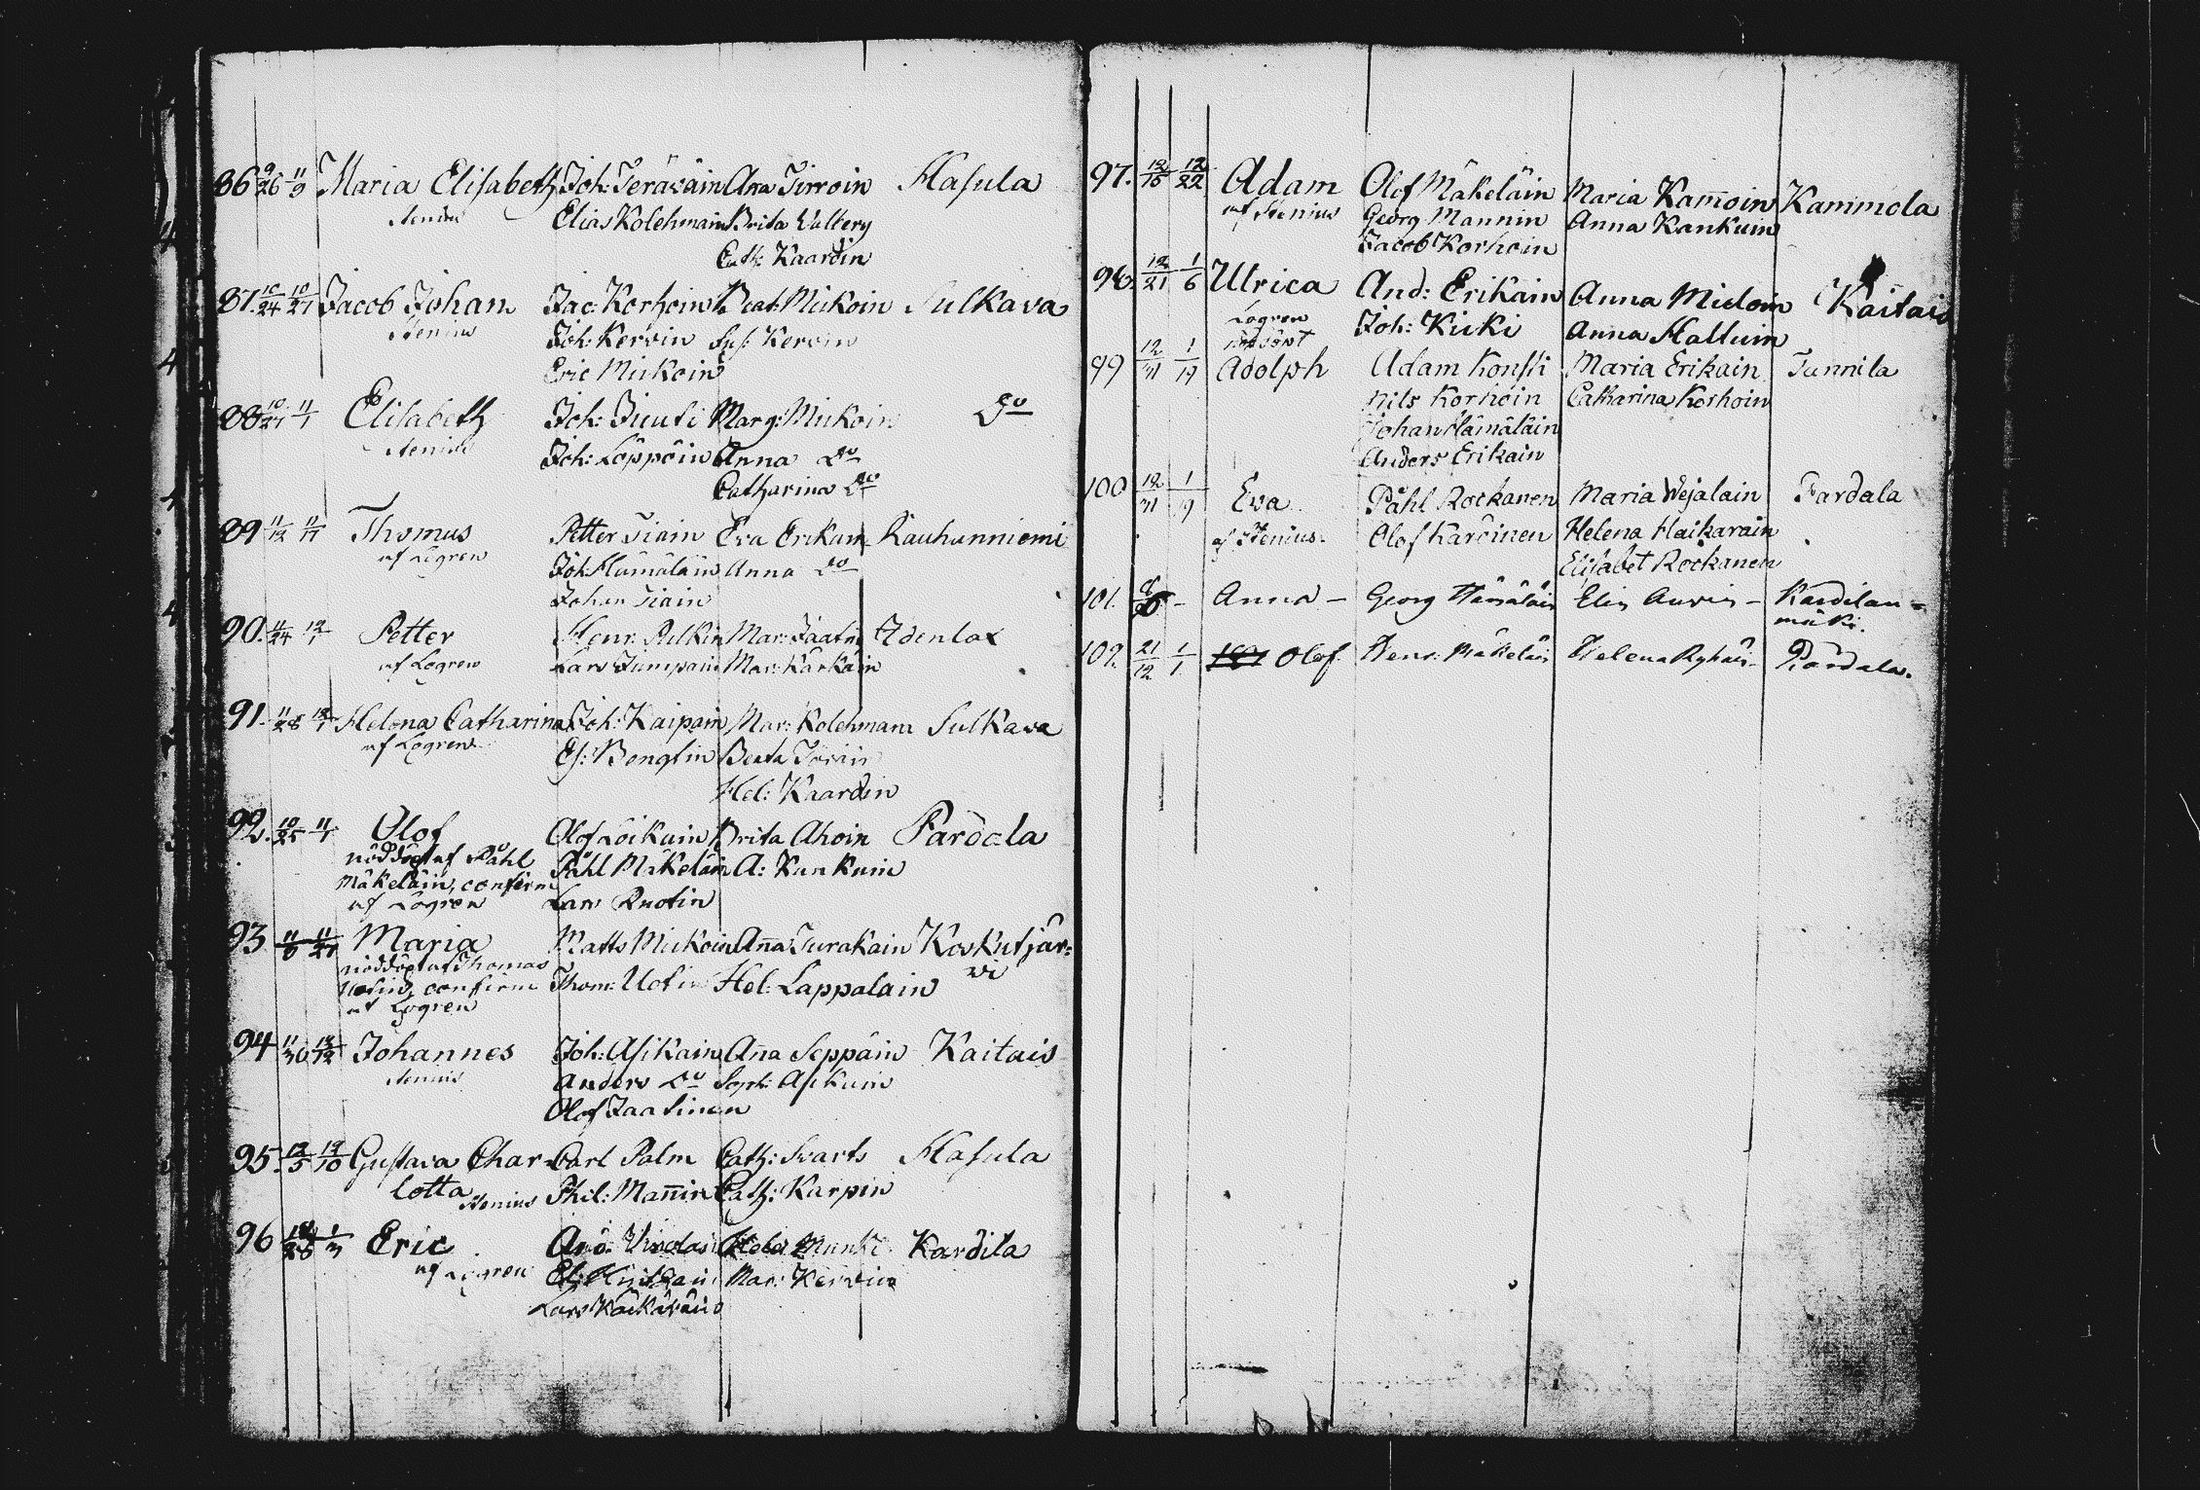 86 9/26 11/9 Maria Elisabeth Joh: Teräväin Ana Tirroin Hasula
Stenius Elias Kolehmain Brita Waltery
Cath: Kaardin
87. 10/24 10/27 Jacob Johan Jac: Korhoin Beat: Miikoin Sulkava
Stenius Joh: Kervin Sus: Kervin
Eric Miikoin
88 10/27 11/1 Elisabeth Joh: Marg: Miikoin Do
Stenius Joh: Löppöin Anna Do
Catharina Do
89 11/12 Thomas Petter Tiain Eva Erikain Rauhanniemi
af Logren Joh: Hämäläin Anna Do
Johan Tiain
90. 11/24 12/1 Petter Henr: Pulkin Mar: Jaatin Adenlax
af Logren Lars Mar: Kärkäin
91. 11/28 12/1 Helena Catharina Joh: Kaipain Mar: Kolehmain Sulkava
af Logren Es: Bengtin Beata
Hel: Kaardin
92. 10/25 11/1 Olof Olof Loikain Brita Ahoin Pardala
nöddöpt af Påhl Påhl Mäkeläin A: Kunkuin
Mäkeläin, confirm
af Logren Lars Ruotin
93 11/8 11/27 Maria Matts Miikoin Aña Turakain Koskutjär=
nöddöpt af Thomas wi
confirm Thom: Hel: Lappalain
af Logren
94 11/30 12/12 Johannes Joh: Asikain Aña Seppäin Kaitais
Stenius Anders Do Soph: Asikain
Olof Jaatinen
95. 12/5 12/10 Gustava Char- Carl Palm Cath: Svarts Hasula
lotta Stenius Phil: Mañin Cath: Karpin
96 12/28 1/3 Eric And: Munki Kardila
af Logren Mar: Kervin
Lars
97. 12/15 12/22 Adam Olof Mäkeläin Maria Kam̄oin Kammola
af Stenius Georg Mannin Anna Kankuin
Jacob Korhoin
98. 12/21 1/6 Ulrica And: Erikain Anna Kaitais
Logren Joh: Kicki Anna Halluin
99 12/31 1/19 Adolph Adam Konsti Maria Erikain Tunnila
Nils Korhoin Catharina Korhoin
Johan Hämäläin
Anders Erikain
100 12/31 1/19 Eva Påhl Rockanen Maria Wejalain Pardala
af Stenius. Olof Karöinen Helena Haikarain
Elisabet Rockanen
101. Anna – Georg Hämäläin Elin Auvin – Kardilan=
mäki.
102. 21/12 1/1 Olof. Henr: Mäkeläin Helena Pardala.